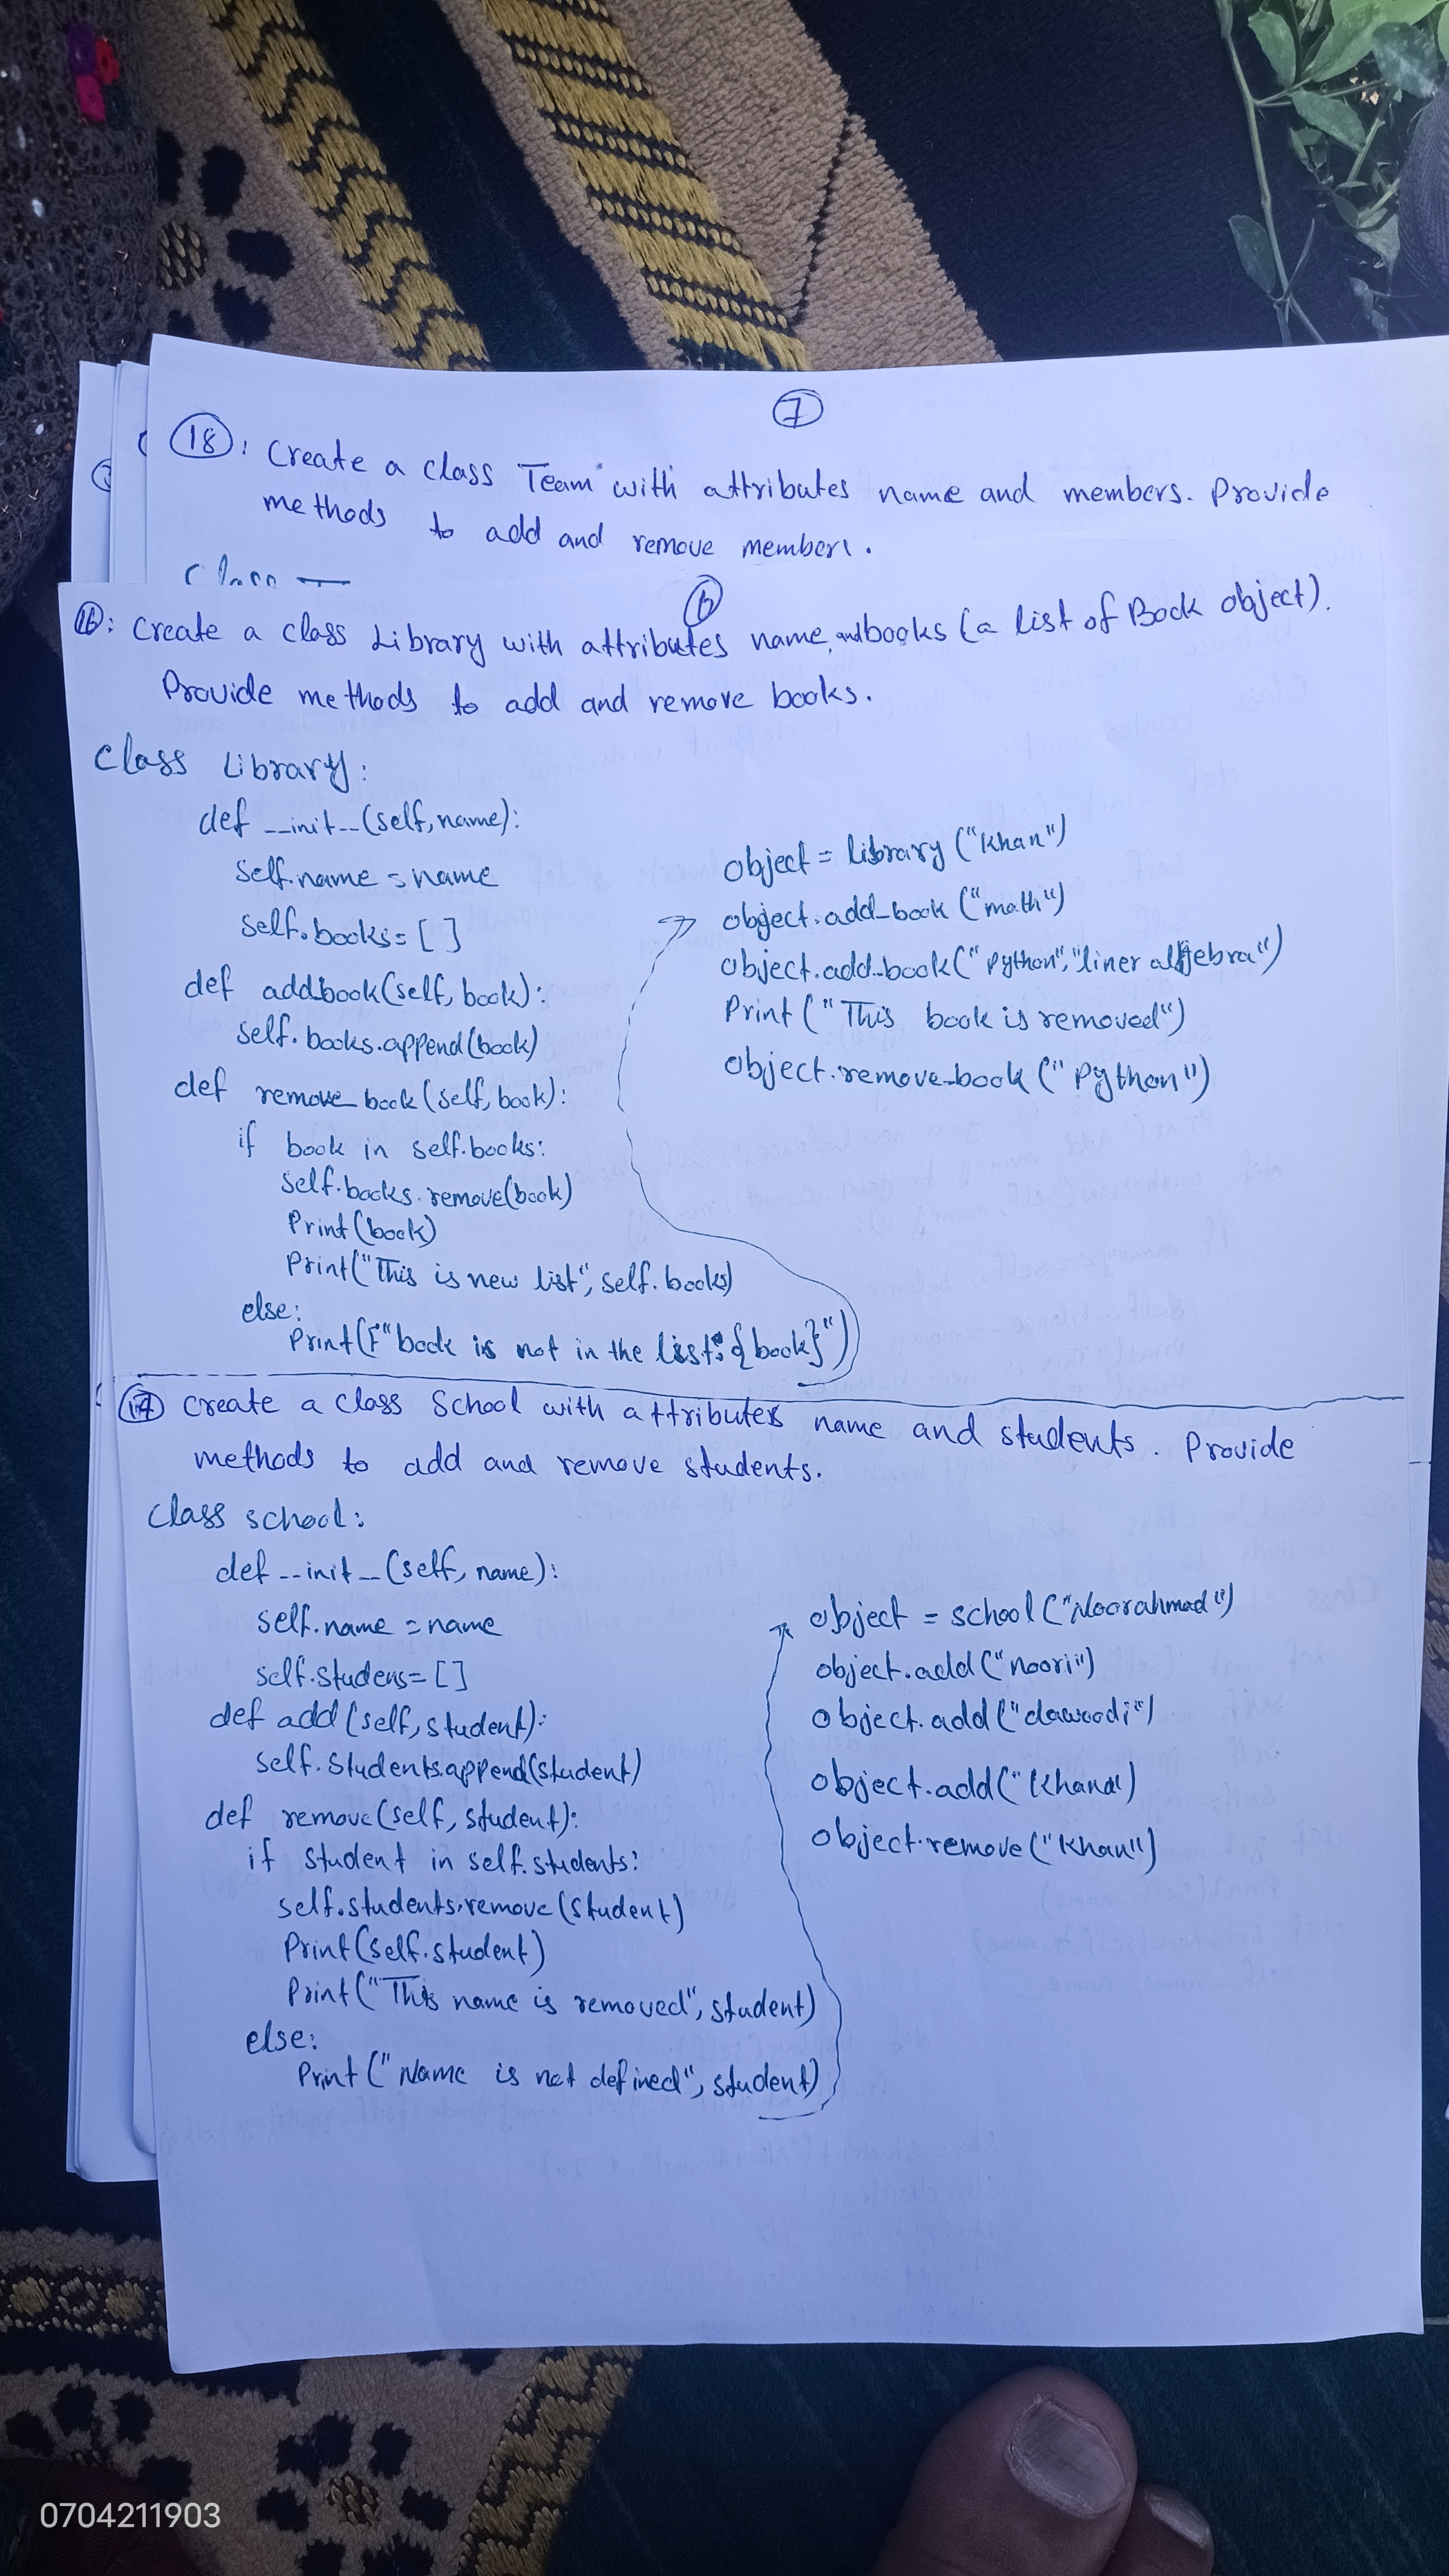 7
18: Create a class Team with attributes name and members. Provide
methods to add and remove members.
Class
6
16: Create a class Library with attributes name, and books (a list of Book object).
Provide methods to add and remove books.
Class Library:
def __init__(self, name):
self.name = name
self.books = [ ]
def addbook(self, book):
self.books.append(book)
def remove_book(self, book):
if book in self.books:
self.books.remove(book)
Print(book)
Print("This is new list", self.books)
else:
Print(F"book is not in the list: {book}")
object = library ("Khan")
object.add_book ("math")
object.add_book ("Python", "liner algebra")
Print ("This book is removed")
object.remove_book ("Python")
17 Create a class School with attributes name and students. Provide
methods to add and remove students.
Class school:
def __init__(self, name):
self.name = name
self.studens = [ ]
def add (self, student):
self.students.append(student)
def remove(self, student):
if student in self.students:
self.students.remove(student)
Print(self.student)
Print("This name is removed", student)
else:
Print ("Name is not defined", student)
object = school ("Noorahmad")
object.add ("noori")
object.add ("dawoodi")
object.add ("Khana")
object.remove ("Khan")
0704211903